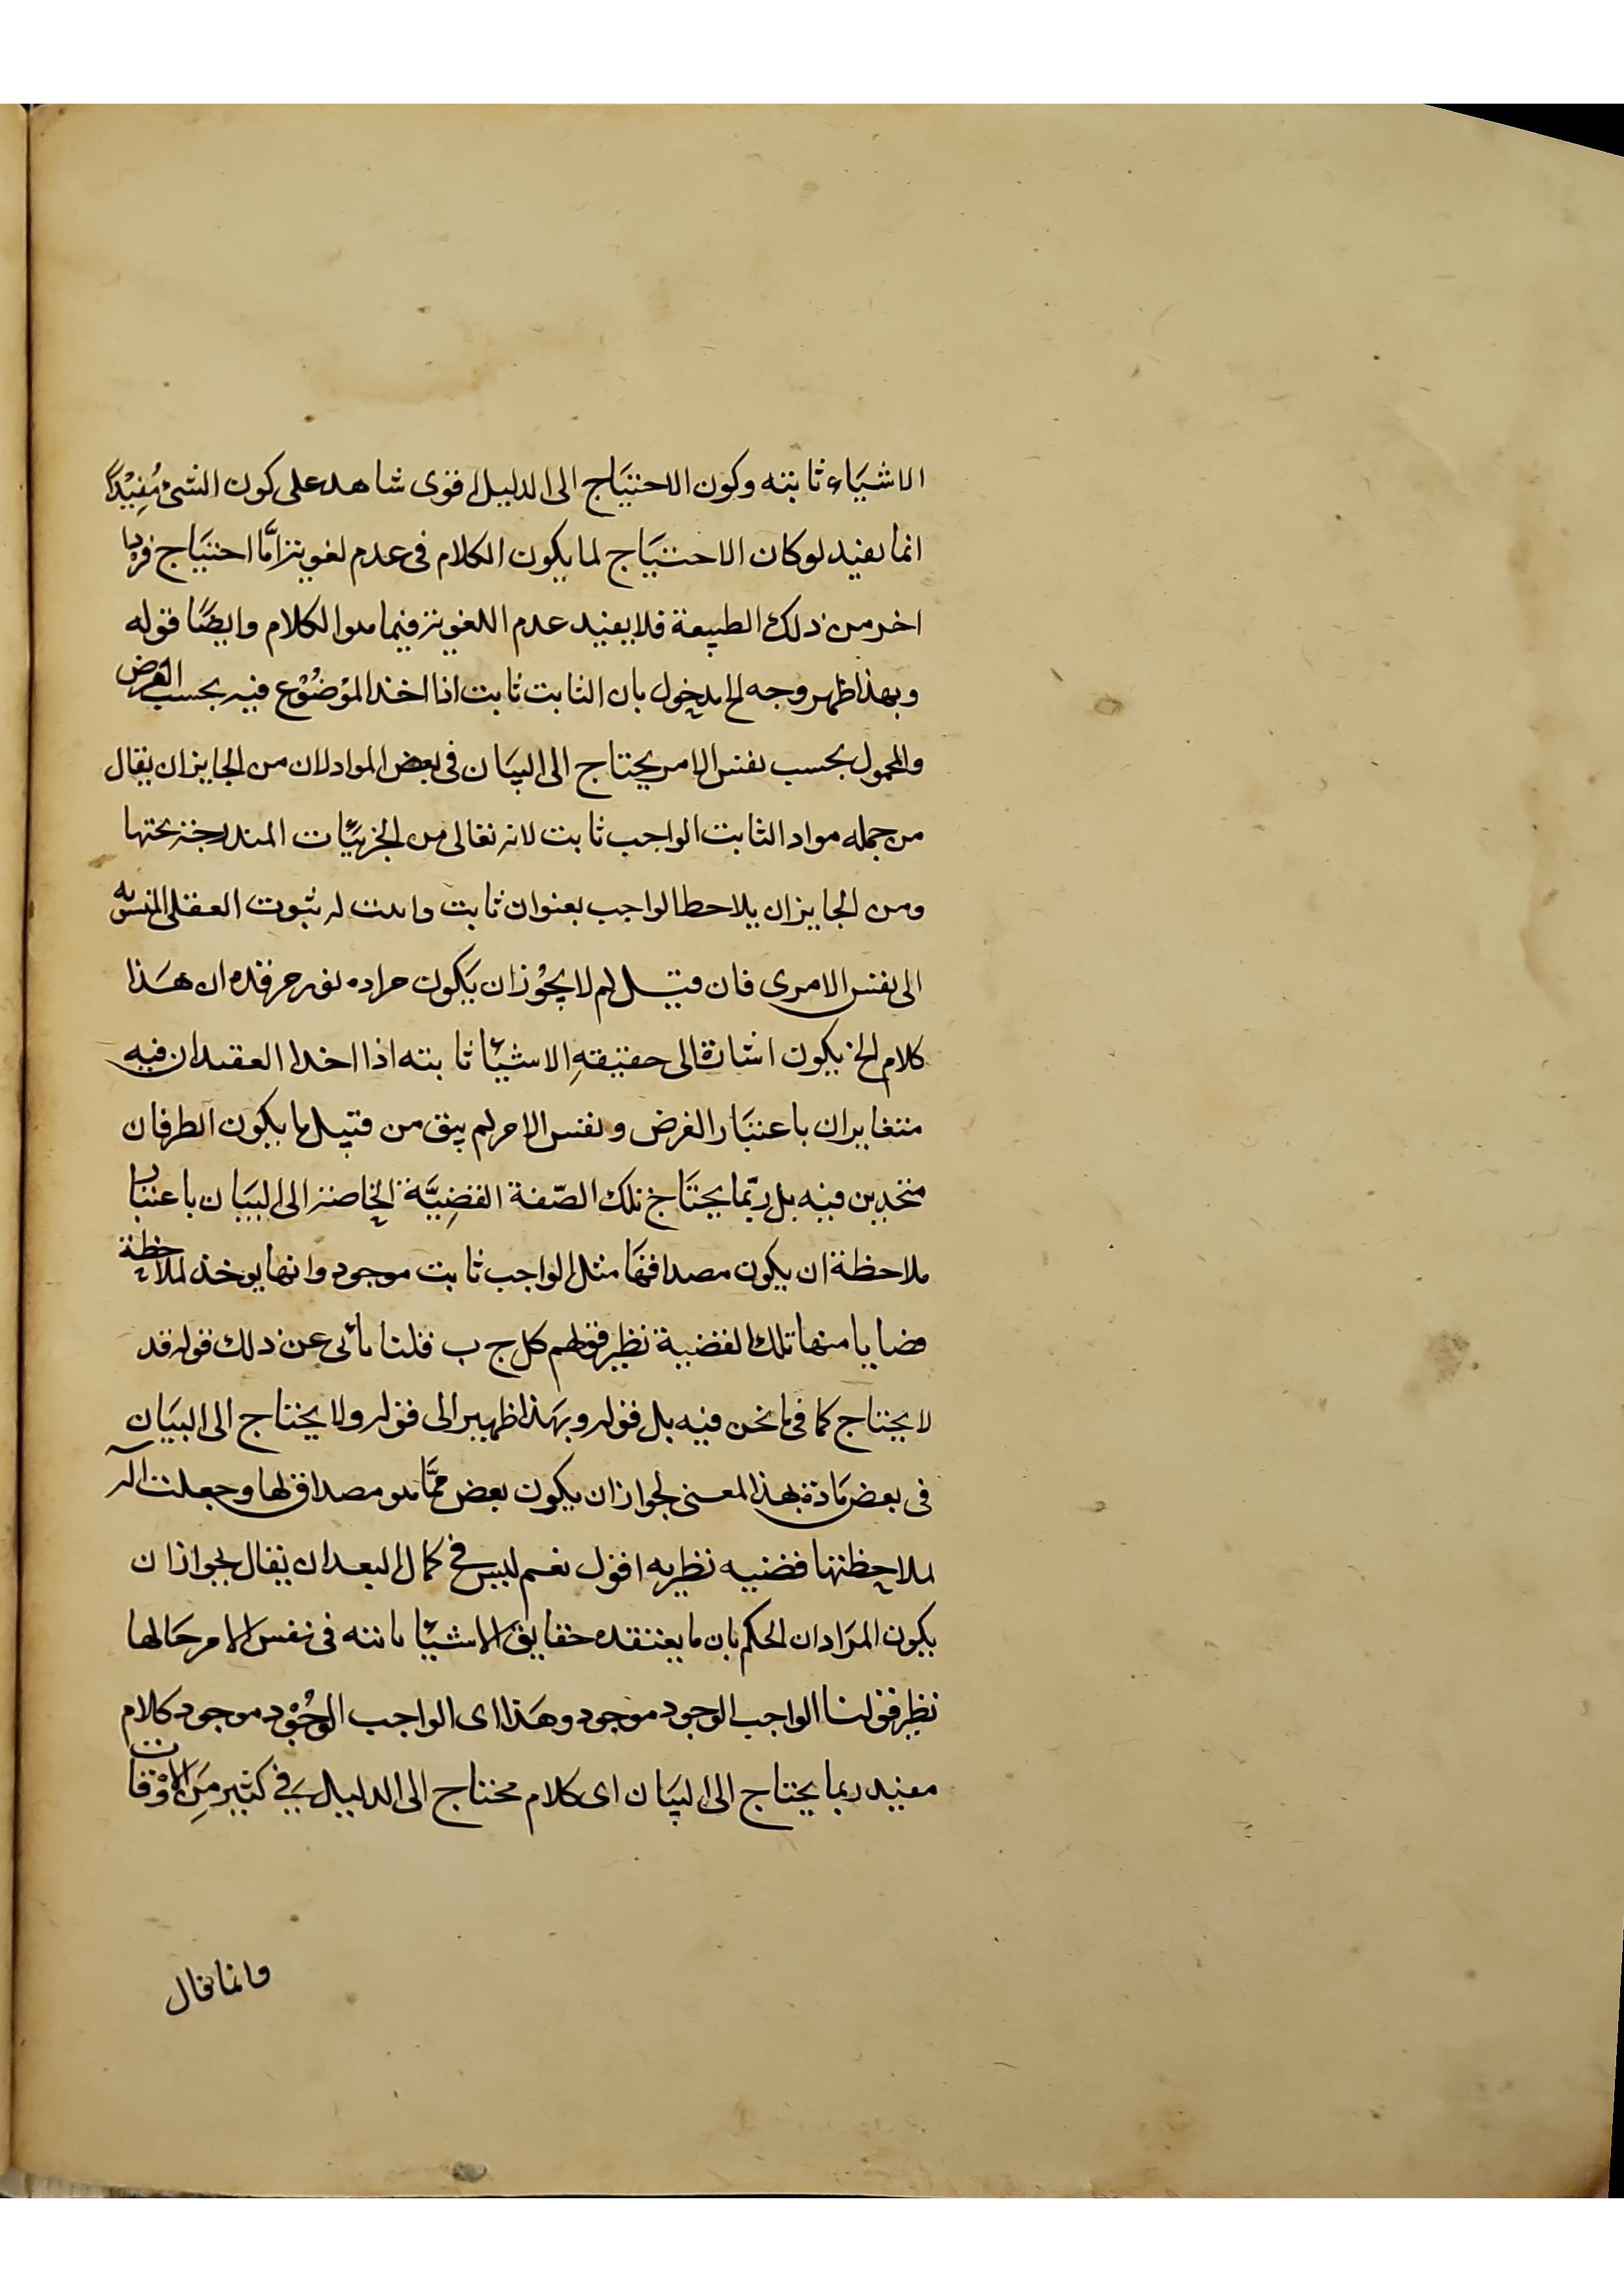 الاشيَاء ثابته وكون الاحتيَاج الى الدليل اقوى شاهد على كون الشئ مُفِيْدًا
انما يفيد لو كان الاحتيَاج لما يكون الكلام فى عدم لغويته امَّا احتيَاج فرد
اخر من ذلك الطبيعة فلا يفيد عدم اللغويته فيما هو الكلام وايضًا قوله
وبهذا ظهر وجه الخ مدخول بان الثابت ثابت اذا اخذ الموْضُوْع فيه بحسب الفرض
والمحمول بحسب نفس الامر يحتاج الى البيَان فى بعض المواد لان من الجايز ان يقال
من جمله مواد الثابت الواجب ثابت لانه تعالى من الجزئيَّات المندرجة تحتها
ومن الجايز ان يلاحظ الواجب بعنوان ثابت له ثبوت العقلى
الى نفس الامرى فان قيل لم لا يجُوْز ان يَكون مراده ان هَذا
كلام الخ يكون اشارة الى حقيقةِ الاشيَا ثابته اذا اخذا العقدان فيه
متغايران باعتبَار الفرض ونفس الامر لم يبق من قبيل ما يكون الطرفان
متحدين فيه بل ربّما يحتَاج تلك الصّفة القضِيَّة الخاصة الى البيَان باعتبار
ملاحظة ان يكون مصداقهَا مثل الواجب ثابت موجود وانها يوخذ لملاحظة
قضايا منها تلك القضية نظير قولهم كل ج ب قلنا يأبى عن ذلك قوله قد
لا يحتاج كما فى ما نحن فيه بل قوله وبهَذا ظهر الى قوله ولا يحتاج الى البيَان
فى بعض مَادة بهذا المعنى لجواز ان يكون بعض ممَّا هو مصداق لها وجعلت آلة
لملاحظتها قضيه نظريه اقول نعم ليس فى كمال البعد ان يقال يجوز ان
يكون المرَاد ان الحكم بان ما يعتقده حقايق الاشيَا ثابته فى نفس الامر حَالها
نظير قولنا الواجب الوجود موجود وهَذا اى الواجب الوجُوْد موجود كلام
مفيد ربما يحتاج الى البيَان اى كلام محتاج الى الدليل فى كثير مِن الاوْقات
وانما قال